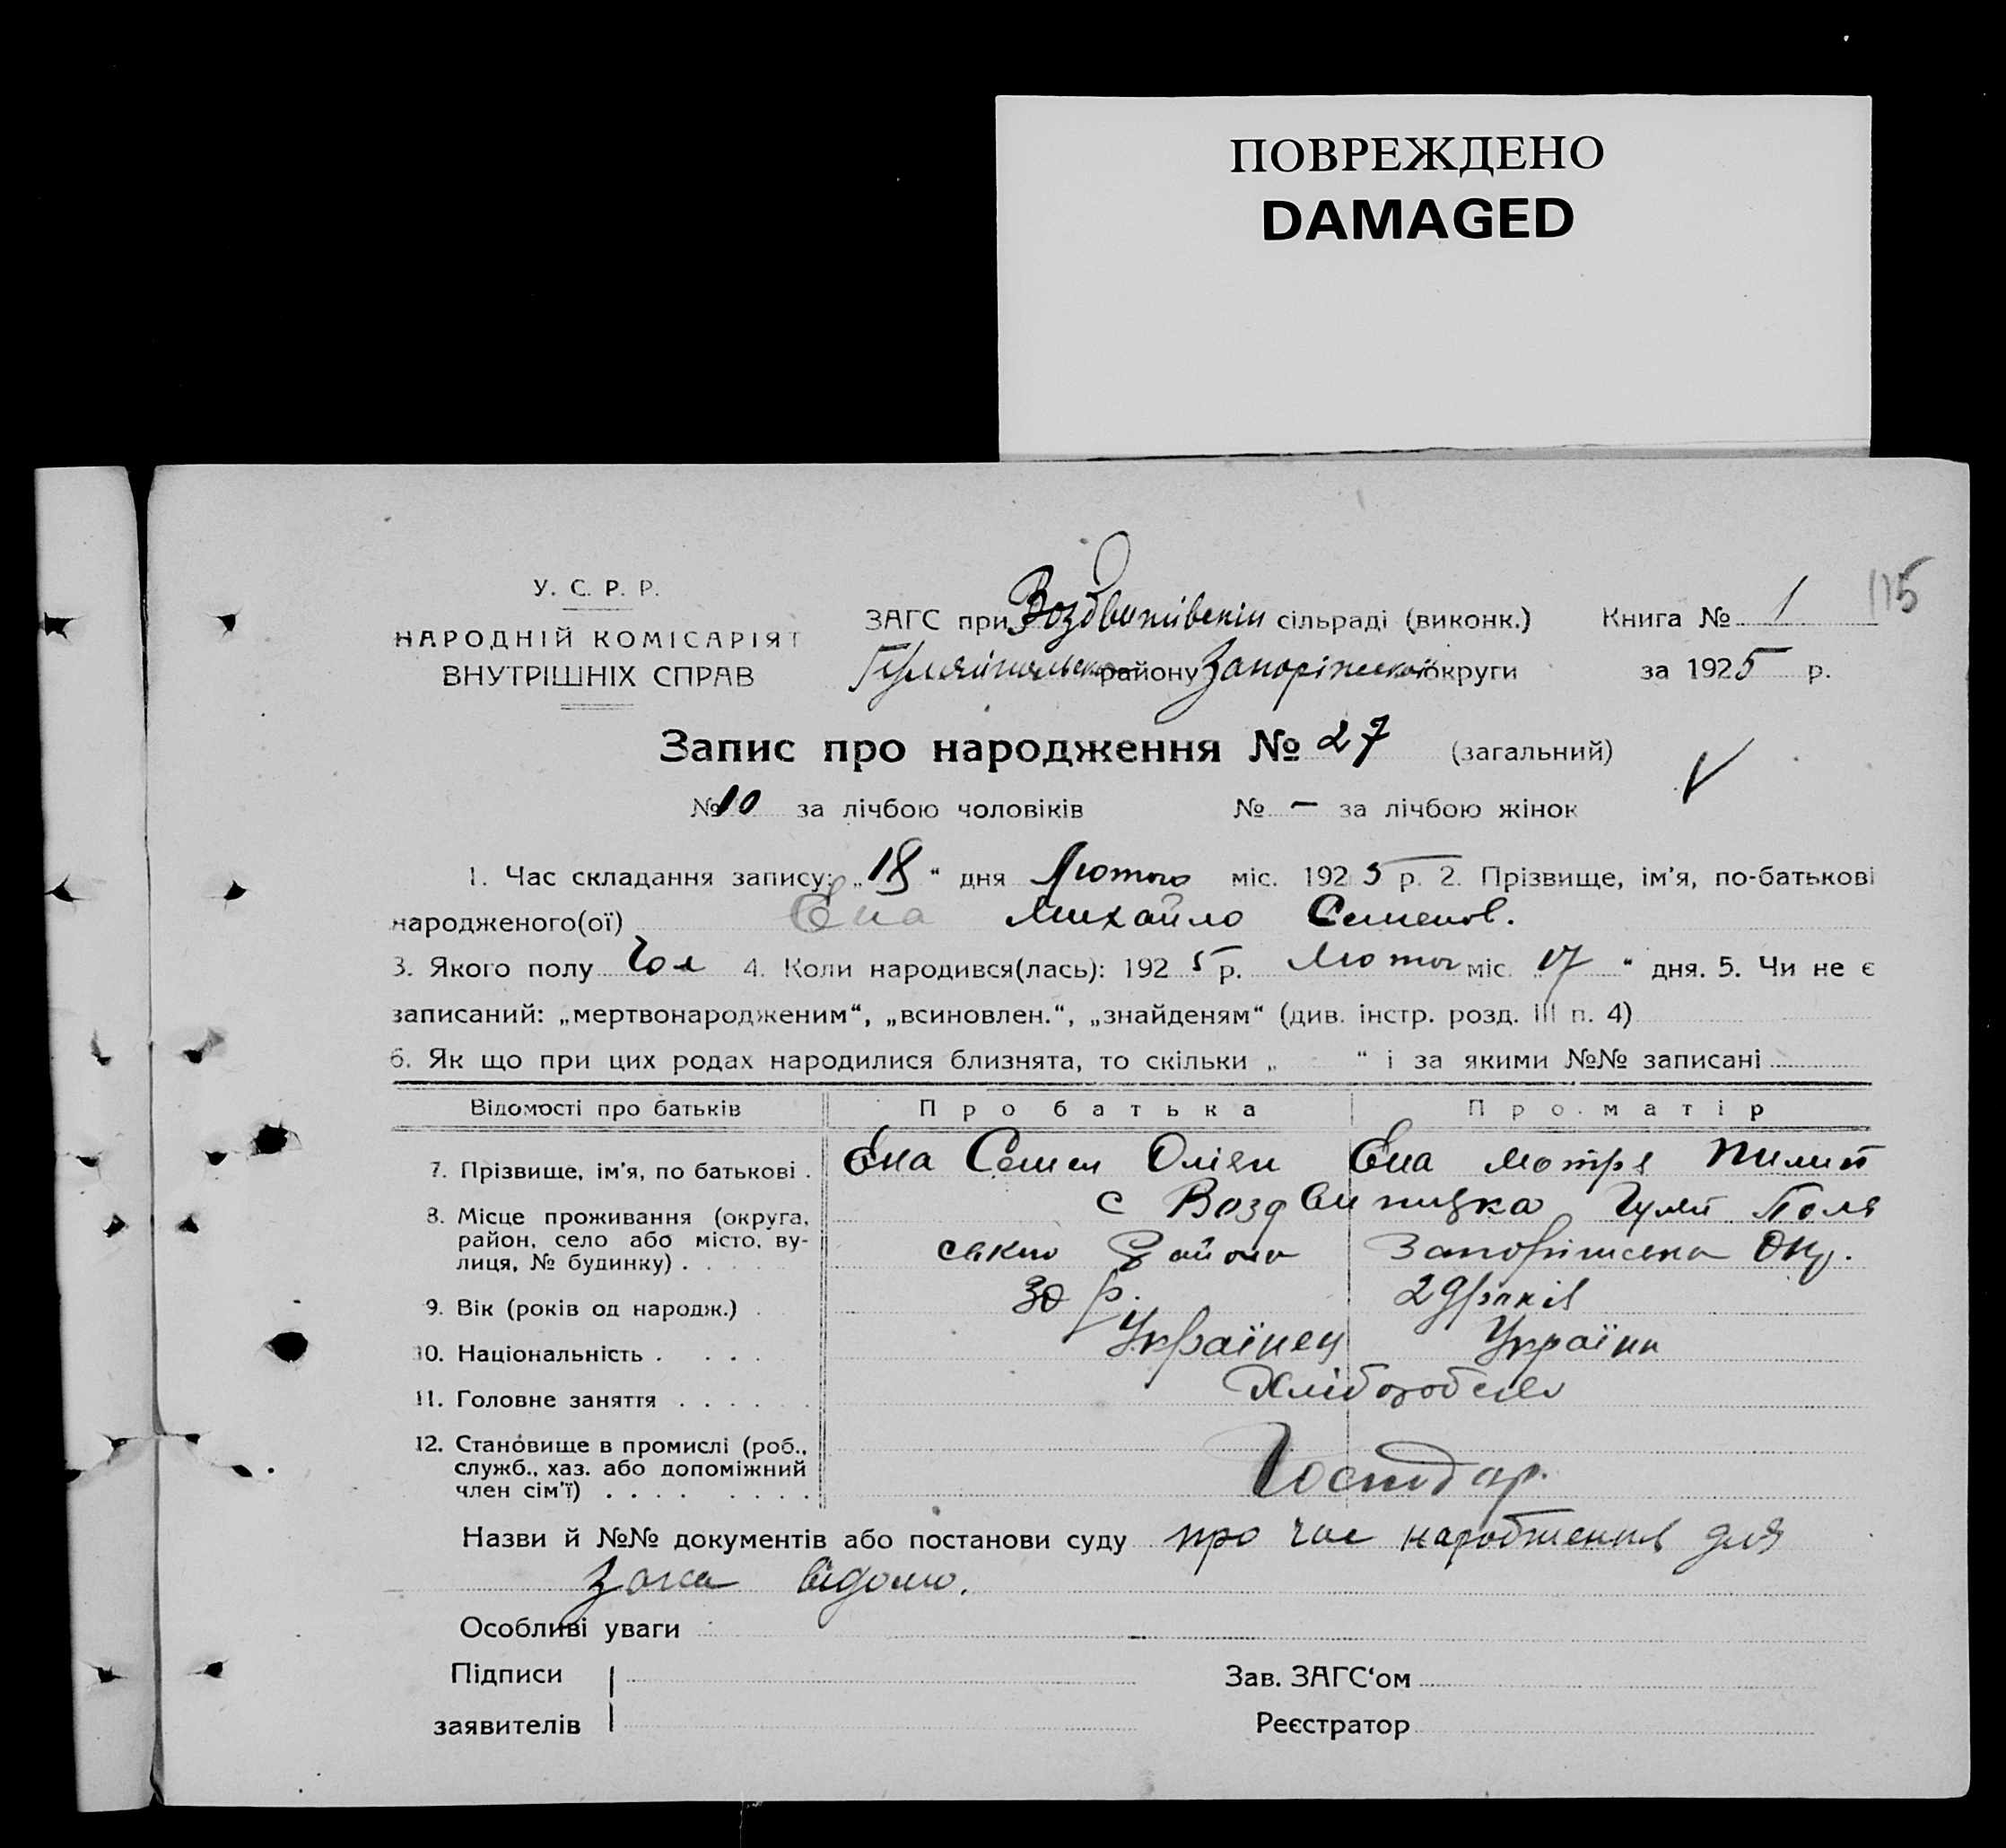 ПОВРЕЖДЕНО
DAMAGED
115
У. С. Р. Р.
НАРОДНІЙ КОМІСАРІЯТ
ВНУТРІШНІХ СПРАВ
ЗАГС при Воздвижівській сільраді (виконк.) Книга № 1
району Запоріжської округи за 1925 р.
Запис про народження № 27 (загальний)
№ 10 за лічбою чоловіків № — за лічбою жінок
1. Час складання запису: „18“ дня Лютого міс. 1925 р. 2. Прізвище, ім'я, по-батькові
народженого(ої) Ена Михайло Семенов.
3. Якого полу Чол 4. Коли народився(лась): 1925 р. Лютого міс. 17 “ дня. 5. Чи не є
записаний: „мертвонародженим“, „всиновлен.“, „знайденям“ (див. інстр. розд. III п. 4)
6. Як що при цих родах народилися близнята, то скільки „ “ і за якими №№ записані
Відомості про батьків Про батька Про матір
7. Прізвище, ім'я, по батькові . Ена Семен Оліян Ена Мотря Пилип
8. Місце проживання (округа, район, село або місто, вулиця, № будинку) . . . . с Воздвижівка Гуляй Поль
ське Району Запоріжська Окр.
9. Вік (років од народж.) . 30 р. 29 років
10. Національність . . . . Українец Україн
11. Головне заняття . . . . . .
12. Становище в промислі (роб., служб., хаз. або допоміжний член сім'ї) . . . . . . . . Госпдар.
Назви й №№ документів або постанови суду про час народження для
Загса відомо.
Особливі уваги
Підписи Зав. ЗАГС‘ом
заявителів Реєстратор